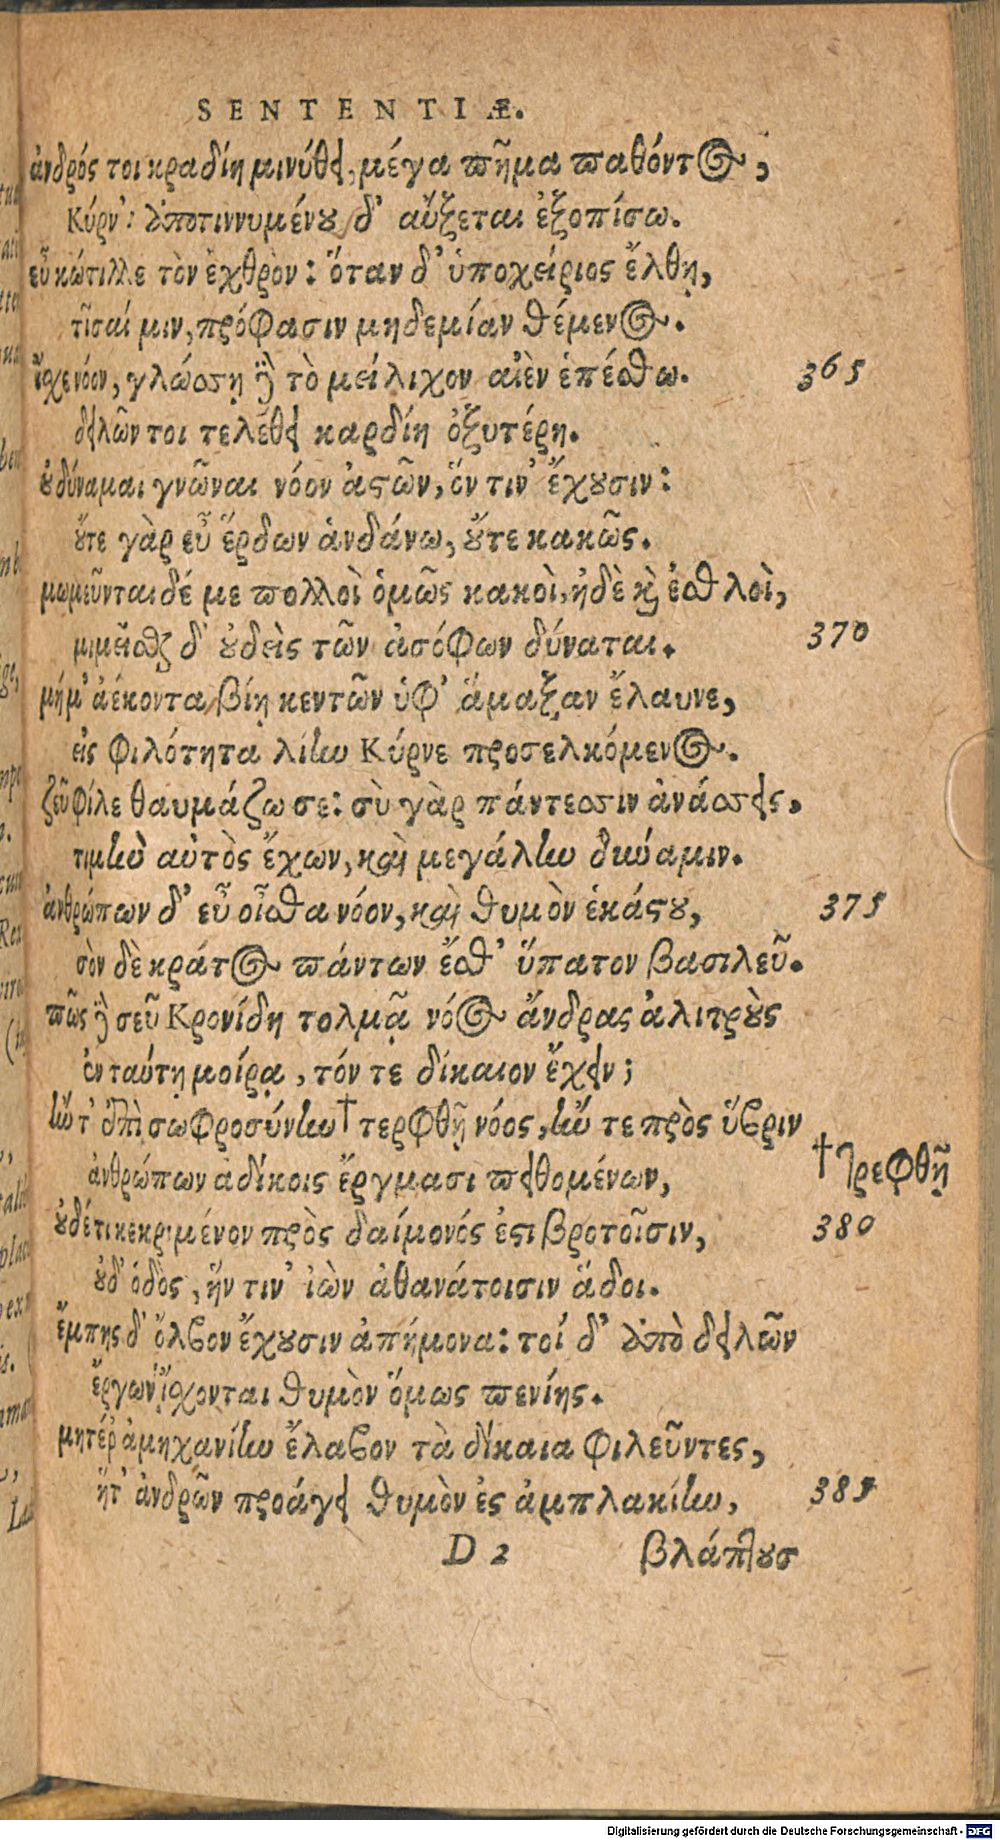 SENTENTIÆ.
ἀνδρός τοι κραδίη μινύθει, μέγα πῆμα παθόντος,
Κύρν': ἀποτιννυμένου δ' αὔξεται ἐξοπίσω.
εὖ κώτιλλε τὸν ἐχθρὸν: ὅταν δ' ὑποχείριος ἔλθῃ,
τῖσαί μιν, πρόφασιν μηδεμίαν θέμενος.
ἴσχε νόον, γλώσσῃ δὲ τὸ μείλιχον αἰὲν ἐπέσθω. 365
δειλῶν τοι τελέθει καρδίη ὀξυτέρη.
οὐ δύναμαι γνῶναι νόον ἀστῶν, ὅν τιν' ἔχουσιν:
οὔτε γὰρ εὖ ἕρδων ἁνδάνω, οὔτε κακῶς.
μωμεῦνται δέ με πολλοὶ ὁμῶς κακοὶ, ἠδὲ καὶ ἐσθλοὶ,
μιμεῖσθαι δ' οὐδεὶς τῶν ἀσόφων δύναται. 370
μή μ' ἀέκοντα βίῃ κεντῶν ὑφ' ἅμαξαν ἔλαυνε,
εἰς φιλότητα λίην Κύρνε προσελκόμενος.
ζεῦ φίλε θαυμάζω σε: σὺ γὰρ πάντεσσιν ἀνάσσεις,
τιμὴν αὐτὸς ἔχων, καὶ μεγάλην δύναμιν.
ἀνθρώπων δ' εὖ οἶσθα νόον, καὶ θυμὸν ἑκάστου, 375
σὸν δὲ κράτος πάντων ἔσθ' ὕπατον βασιλεῦ.
πῶς δὲ σεῦ Κρονίδη τολμᾷ νόος ἄνδρας ἀλιτροὺς
ἐν ταύτῃ μοίρᾳ, τόν τε δίκαιον ἔχειν;
ἤν τ' ἐπὶ σωφροσύνην † τερφθῇ νόος, ἤν τε πρὸς ὕβριν
† τρεφθῇ
ἀνθρώπων ἀδίκοις ἔργμασι πειθομένων,
οὐδέ τι κεκριμένον πρὸς δαίμονός ἐστι βροτοῖσιν, 380
οὐδ' ὁδὸς, ἥν τιν' ἰὼν ἀθανάτοισιν ἅδοι.
ἔμπης δ' ὄλβον ἔχουσιν ἀπήμονα: τοί δ' ἀπὸ δειλῶν
ἔργων ἴσχονται θυμὸν ὅμως πενίης.
μητέρ' ἀμηχανίην ἔλαβον τὰ δίκαια φιλεῦντες,
ἥτ' ἀνδρῶν προάγει θυμὸν ἐς ἀμπλακίην, 385
D 2 βλάπτουσ
Digitalisierung gefördert durch die Deutsche Forschungsgemeinschaft - DFG